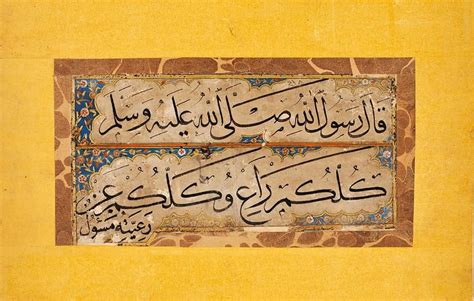 قال رسول الله صلى الله عليه وسلم
كلكم راع وكلكم عن
رعيته مسئول